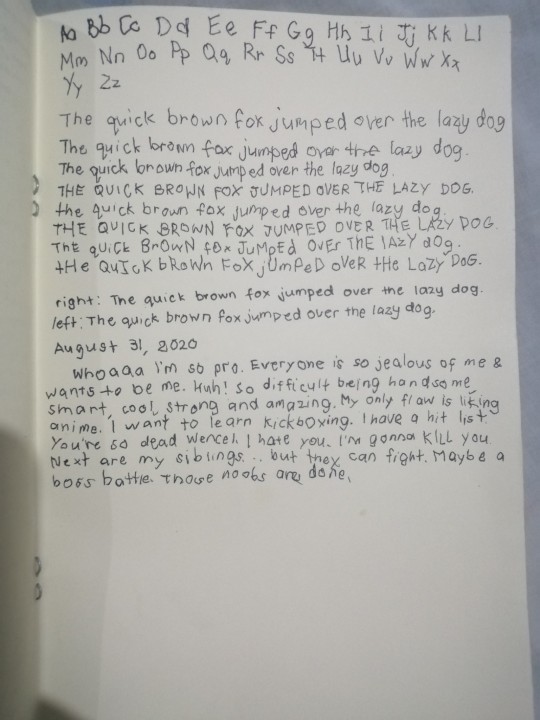 Aa Bb Cc Dd Ee Ff Gg Hh Ii Jj Kk Ll
Mm Nn Oo Pp Qq Rr Ss Tt Uu Vv Ww Xx
Yy Zz
The quick brown fox jumped over the lazy dog
The quick brown fox jumped over the lazy dog.
The quick brown fox jumped over the lazy dog.
THE QUICK BROWN FOX JUMPED OVER THE LAZY DOG.
the quick brown fox jumped over the lazy dog.
THE QUICK BROWN FOX JUMPED OVER THE LAZY DOG.
ThE quiCk BrOwN fOx JuMpEd OvEr ThE lAzY dOg.
tHe QuIcK bRoWn FoX jUmPeD oVeR tHe LaZy DoG.
right: The quick brown fox jumped over the lazy dog.
left: The quick brown fox jumped over the lazy dog.
August 31, 2020
Whoaaa I'm so pro. Everyone is so jealous of me &
wants to be me. Huh! So difficult being handsome,
smart, cool, strong and amazing. My only flaw is liking
anime. I want to learn kickboxing. I have a hit list.
You're so dead Wencel. I hate you. I'm gonna kill you.
Next are my siblings... but they can fight. Maybe a
boss battle. Those noobs are done.